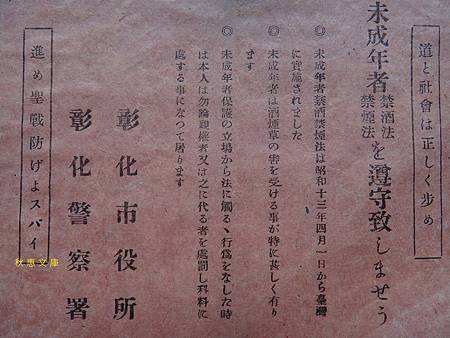 道と社會は正しく步め
未成年者禁酒法禁煙法を遵守致しませう
◎ 未成年者禁酒禁煙法は昭和十三年四月一日から臺灣
に實施されました
◎ 未成年者は酒煙草の害を受ける事が特に甚しく有り
ます
◎ 未成年者保護の立場から法に觸るゝ行爲をなした時
は本人は勿論親權者又は之に代る者を處罰し科料に
處する事になつて居ります
彰化市役所
彰化警察署
進め聖戰防げよスパイ
秋惠文庫